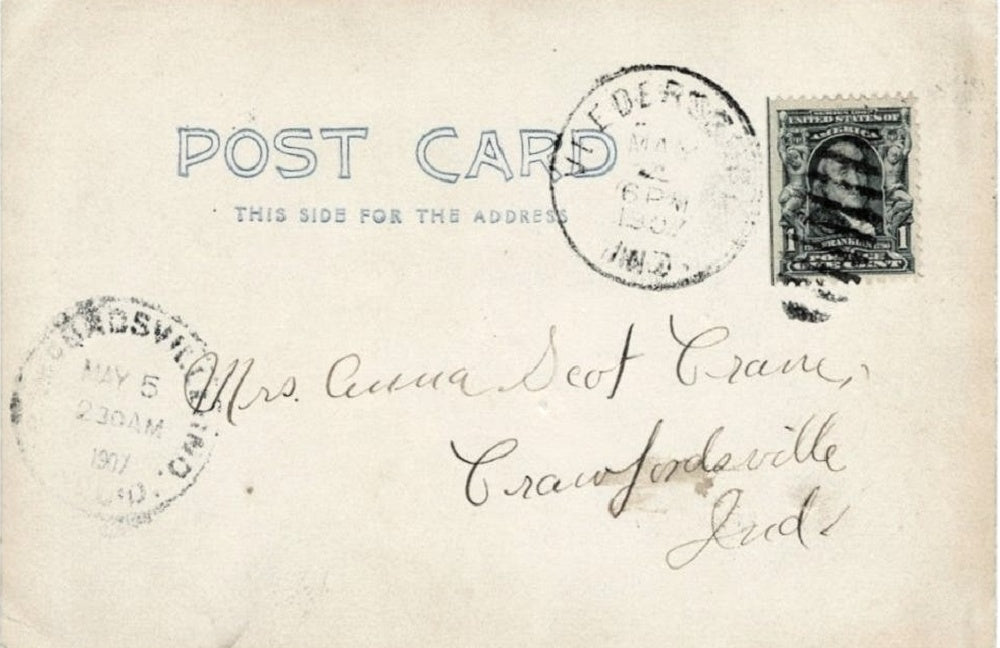 POST CARD
THIS SIDE FOR THE ADDRESS
6 PM
1907
IND.
SERIES 1902
UNITED STATES OF
AMERICA
FRANKLIN
1 1
ONE CENT
MAY 5
2 30 AM
1907
IND.
Mrs. Anna Scot Crane,
Crawfordsville
Ind.